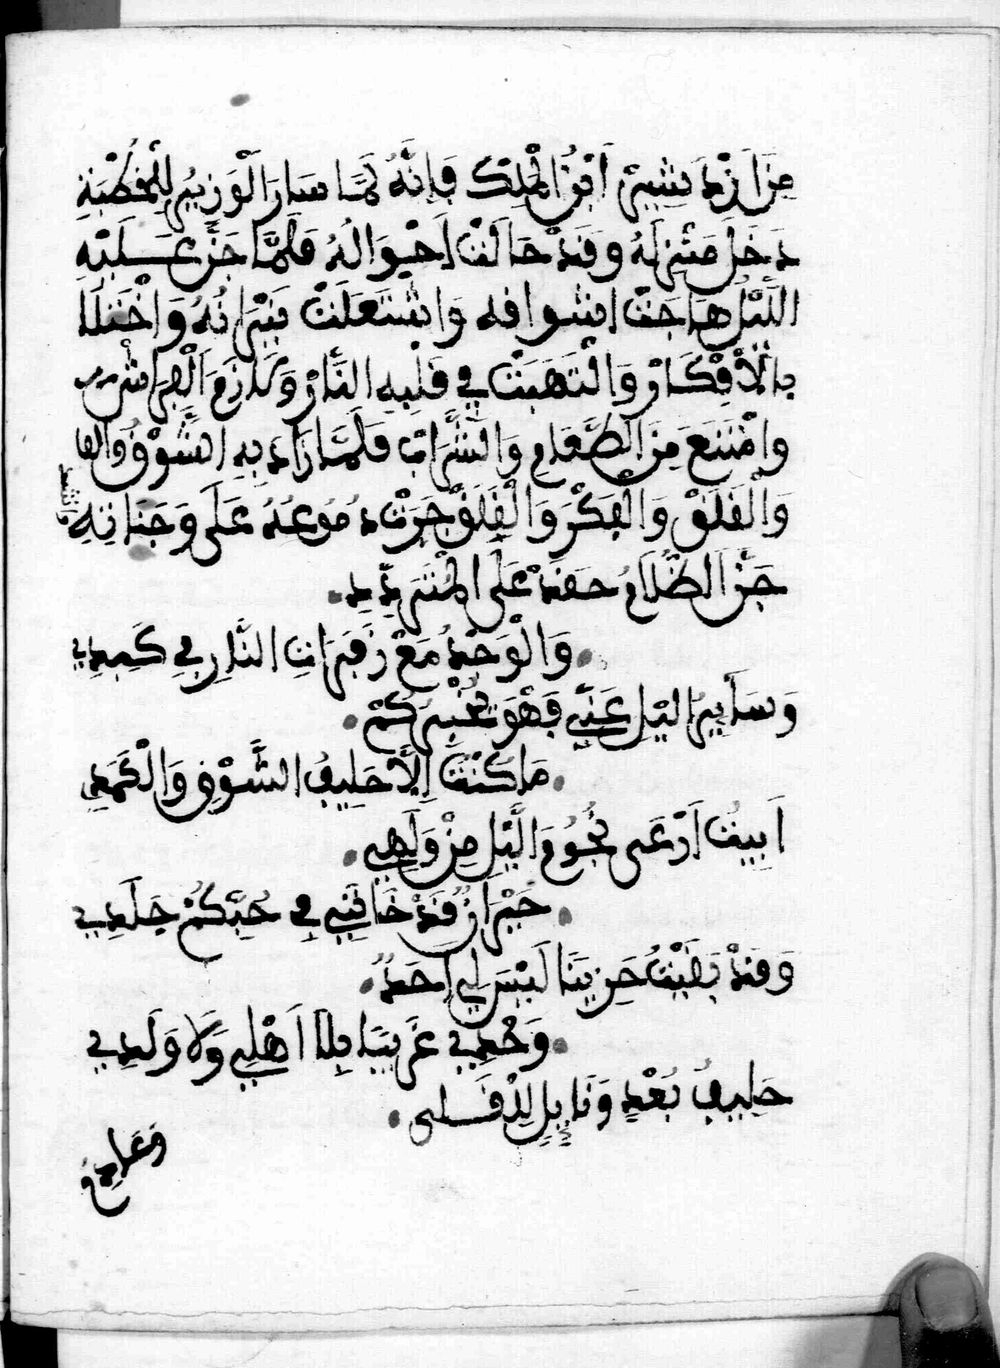 مِنَ ازْدَشِيرْ ابْنُ الْمَلِكْ فَإِنَّهُ لَمَّا سَارَ الْوَزِيرُ لِلْخُطْبَةِ
دَخَلَ مَنْزِلَهُ وَقَدْ حَالَتْ اَحْوَالُهُ فَلَمَّا جَنَّ عَلَيْهِ
اللَّيْلُ هَاجَتْ اشوافه وَاشْتَعَلَتْ نِيْرَانُهُ وَاخْتَلَا
بِالْأَفْكَارْ وَالْتَهَبَتْ فِي قَلْبِهِ النَّارْ وَلَازَمَ الْفِرَاشْ
وَامْتَنَعَ مِنَ الطَّعَامِ وَالشَّرَابْ فَلَمَّا زَادَ بِهِ الشَّوْقُ
وَالْقَلَقْ وَالْفِكْرَ وَالْقَلَقْ جَرَتْ دُمُوعُهُ عَلَى وَجَنَاتِهِ وانشد
جَنَّ الظَّلَامُ حقد عَلَى
وَالْوَجْدُ مَعْ زَفَرَاتِ النَّارِ فِي كَبِدِي
وَسَايِرُ اليْلِ عَنِّي فَهْوَ يُخْبِرُكُمْ
مَا كُنْتُ إِلَّا حَلِيفُ الشَّوْقِ وَالْكَمَدِ
اَبِيتُ اَرْعَى نُجُومَ الَّيْلِ مِنْ وَلَهِي
حَيْرَانُ قَدْ خَانَنِي فِي حُبِّكُمْ جَلَدِي
وَقَدْ بَقَيْتُ حَزِينَا لَيْسَ لِي اَحَدٌ
وَحْدِي غَرِيبًا بِلَا اَهْلِي وَلَا وَلَدِي
حَلِيفُ بُعْدٍ